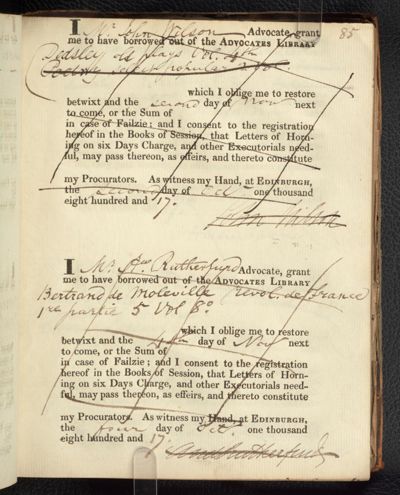 85
I Mr John Wilson Advocate, grant
me to have borrowed out of the ADVOCATES LIBRARY
Dodsley old plays Vol. 4th
Poetry
which I oblige me to restore
betwixt and the second day of Nov next
to come, or the Sum of
in case of Failzie; and I consent to the registration
hereof in the Books of Session, that Letters of Horn-
ing on six Days Charge, and other Executorials need-
ful, may pass thereon, as effeirs, and thereto constitute
my Procurators. As witness my Hand, at EDINBURGH,
the second day of Oct one thousand
eight hundred and 17.
John Wilson
I Mr Rutherfurd Advocate, grant
me to have borrowed out of the ADVOCATES LIBRARY
Bertrand de Moleville Revol. de France
1re partie 5 Vol 8o
which I oblige me to restore
betwixt and the 4th day of Nov next
to come, or the Sum of
in case of Failzie; and I consent to the registration
hereof in the Books of Session, that Letters of Horn-
ing on six Days Charge, and other Executorials need-
ful, may pass thereon, as effeirs, and thereto constitute
my Procurators. As witness my Hand, at EDINBURGH,
the four day of Oct. one thousand
eight hundred and 17
Rutherfurd